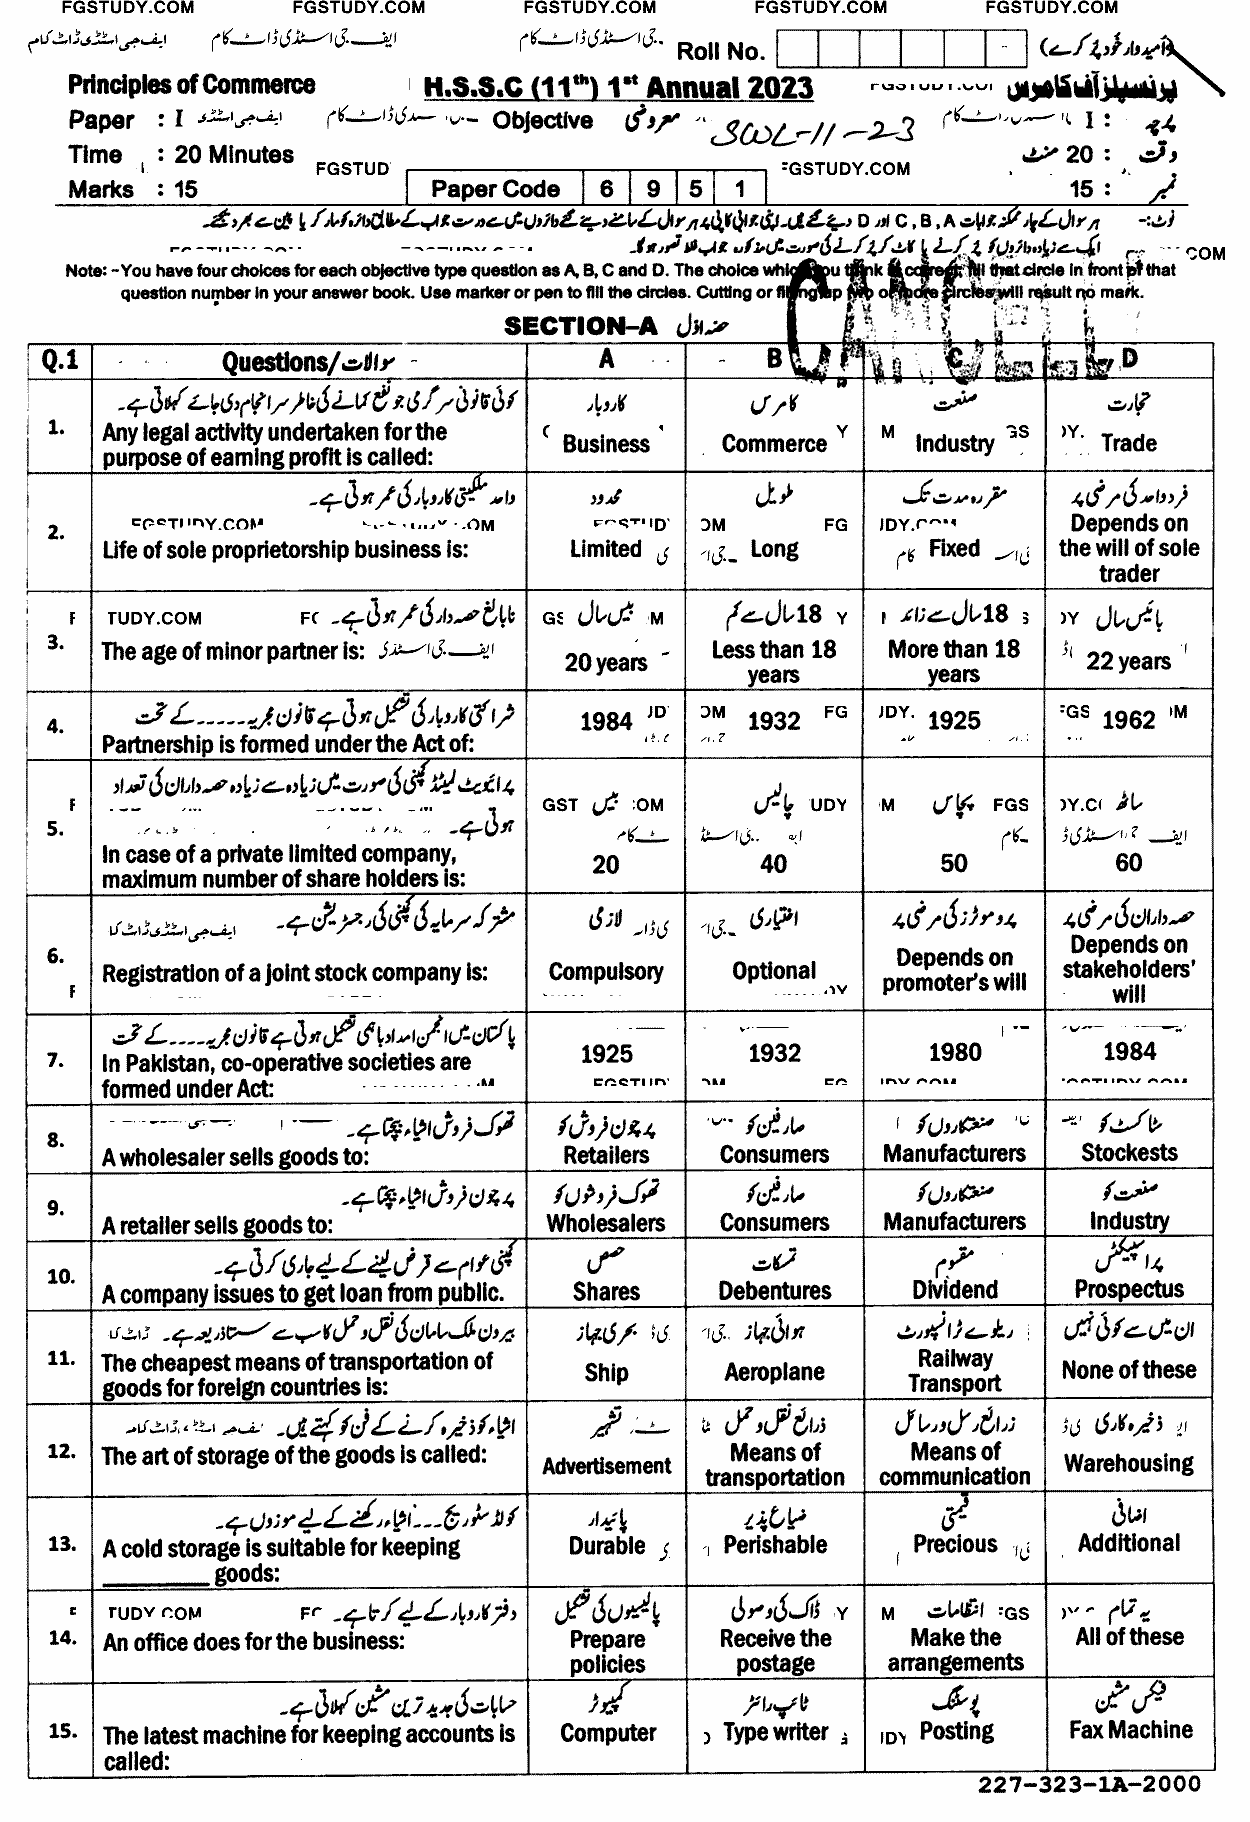 FGSTUDY.COM FGSTUDY.COM FGSTUDY.COM FGSTUDY.COM FGSTUDY.COM
ایف جی اسٹڈی ڈاٹ کام
Roll No. - (امیدوار خود پُر کرے)
Principles of Commerce H.S.S.C (11th) 1st Annual 2023 پرنسپلز آف کامرس
Paper : I Objective معروضی SWL-11-23 پرچہ : I
Time : 20 Minutes وقت : 20 منٹ
FGSTUD FGSTUDY.COM
Marks : 15 Paper Code 6 9 5 1 نمبر : 15
نوٹ:- ہر سوال کے چار ممکنہ جوابات A ، B ، C اور D دیئے گئے ہیں۔
Note: -You have four choices for each objective type question as A, B, C and D. The choice which you think is correct; fill that circle in front of that
question number in your answer book. Use marker or pen to fill the circles. Cutting or filling up two or more circles will result no mark.
CANCELL
SECTION-A حصہ اوّل
Q.1 Questions/سوالات A B C D
کوئی قانونی سرگرمی جو نفع کمانے کی خاطر سرانجام دی جائے کہلاتی ہے۔ کاروبار کامرس صنعت تجارت
1. Any legal activity undertaken for the purpose of earning profit is called: Business Commerce Industry Trade
واحد ملکیتی کاروبار کی عمر ہوتی ہے۔ محدود طویل مقررہ مدت تک فرد واحد کی مرضی پر
2. Life of sole proprietorship business is: Limited Long Fixed Depends on the will of sole trader
نابالغ حصہ دار کی عمر ہوتی ہے۔ بیس سال 18 سال سے کم 18 سال سے زائد بائیس سال
3. The age of minor partner is: 20 years Less than 18 years More than 18 years 22 years
شراکتی کاروبار کی تشکیل ہوتی ہے قانون مجریہ ...... کے تحت
4. Partnership is formed under the Act of: 1984 1932 1925 1962
پرائیویٹ لمیٹڈ کمپنی کی صورت میں زیادہ سے زیادہ حصہ داران کی تعداد ہوتی ہے۔ بیس چالیس پچاس ساٹھ
5. In case of a private limited company, maximum number of share holders is: 20 40 50 60
مشترکہ سرمایہ کی کمپنی کی رجسٹریشن ہے۔ لازمی اختیاری پروموٹرز کی مرضی پر حصہ داران کی مرضی پر
6. Registration of a joint stock company is: Compulsory Optional Depends on promoter's will Depends on stakeholders' will
پاکستان میں انجمن امداد باہمی تشکیل ہوتی ہے قانون مجریہ .... کے تحت
7. In Pakistan, co-operative societies are formed under Act: 1925 1932 1980 1984
تھوک فروش اشیاء بیچتا ہے۔ پرچون فروش کو صارفین کو صنعتکاروں کو سٹاکسٹ کو
8. A wholesaler sells goods to: Retailers Consumers Manufacturers Stockests
پرچون فروش اشیاء بیچتا ہے۔ تھوک فروشوں کو صارفین کو صنعتکاروں کو صنعت کو
9. A retailer sells goods to: Wholesalers Consumers Manufacturers Industry
کمپنی عوام سے قرض لینے کے لیے جاری کرتی ہے۔ حصص تمسکات مقسوم پراسپیکٹس
10. A company issues to get loan from public. Shares Debentures Dividend Prospectus
بیرون ملک سامان کی نقل و حمل کا سب سے سستا ذریعہ ہے۔ بحری جہاز ہوائی جہاز ریلوے ٹرانسپورٹ ان میں سے کوئی نہیں
11. The cheapest means of transportation of goods for foreign countries is: Ship Aeroplane Railway Transport None of these
اشیاء کو ذخیرہ کرنے کے فن کو کہتے ہیں۔ تشہیر ذرائع نقل و حمل ذرائع رسل و رسائل ذخیرہ کاری
12. The art of storage of the goods is called: Advertisement Means of transportation Means of communication Warehousing
کولڈ سٹوریج --- اشیاء رکھنے کے لیے موزوں ہے۔ پائیدار ضیاع پذیر قیمتی اضافی
13. A cold storage is suitable for keeping ________ goods: Durable Perishable Precious Additional
دفتر کاروبار کے لیے کرتا ہے۔ پالیسیوں کی تشکیل ڈاک کی وصولی انتظامات یہ تمام
14. An office does for the business: Prepare policies Receive the postage Make the arrangements All of these
حسابات کی جدید ترین مشین کہلاتی ہے۔ کمپیوٹر ٹائپ رائٹر پوسٹنگ فیکس مشین
15. The latest machine for keeping accounts is called: Computer Type writer Posting Fax Machine
227-323-1A-2000